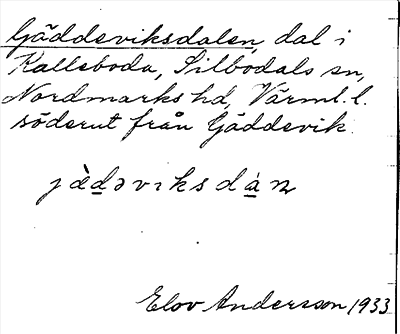 Gäddeviksdalen, dal i
Kalleboda, Silbodals sn,
Nordmarks hd, Värml. l.
söderut från Gäddevik.
jὲd̲əvıksdá̲n
Elov Andersson 1933